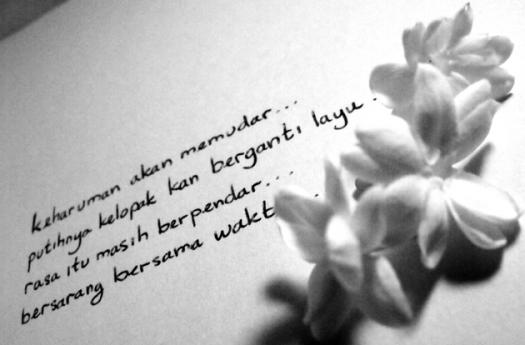 keharuman akan memudar...
putihnya kelopak kan berganti layu.
rasa itu masih berpendar...
bersarang bersama wakt